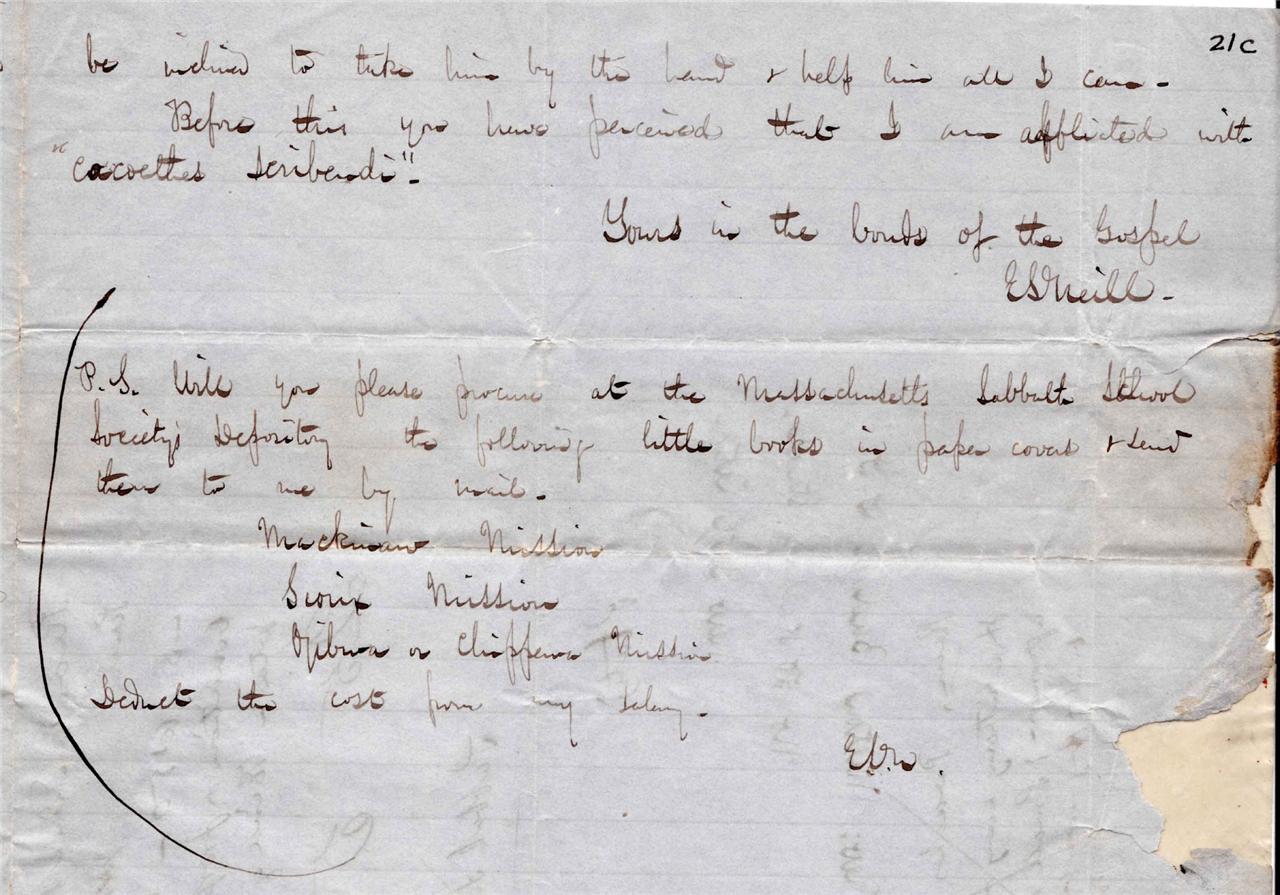 21c
be inclined to take him by the hand & help him all I can -
Before this you have perceived that I am afflicted with
"cacoethes scribendi".
Yours in the bonds of the Gospel
E D Neill -
P. S. Will you please procure at the Massachusetts Sabbath School
Society's Depository the following little books in paper covers & send
them to me by mail -
Mackinaw Mission
Sioux Mission
Ojibwa or Chippewa Mission
Deduct the cost from my salary -
E.D.N.